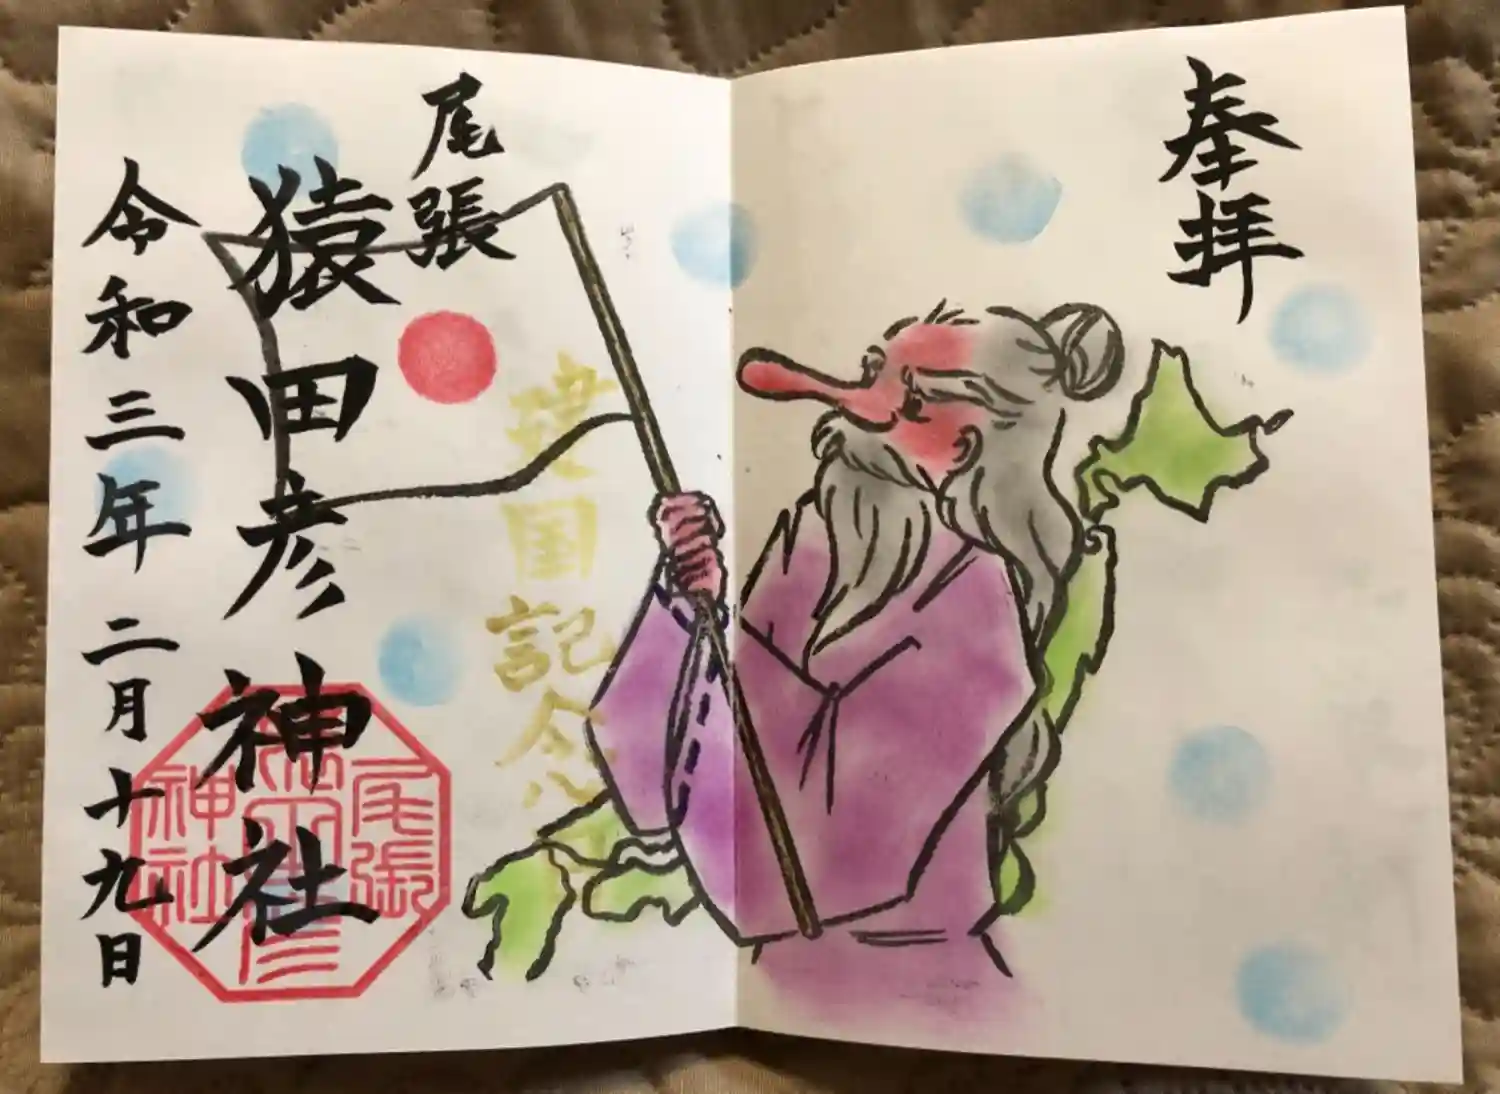 奉拝
建国記念
尾張
猿田彦神社
令和三年二月十九日
尾張
猿田彦
神社